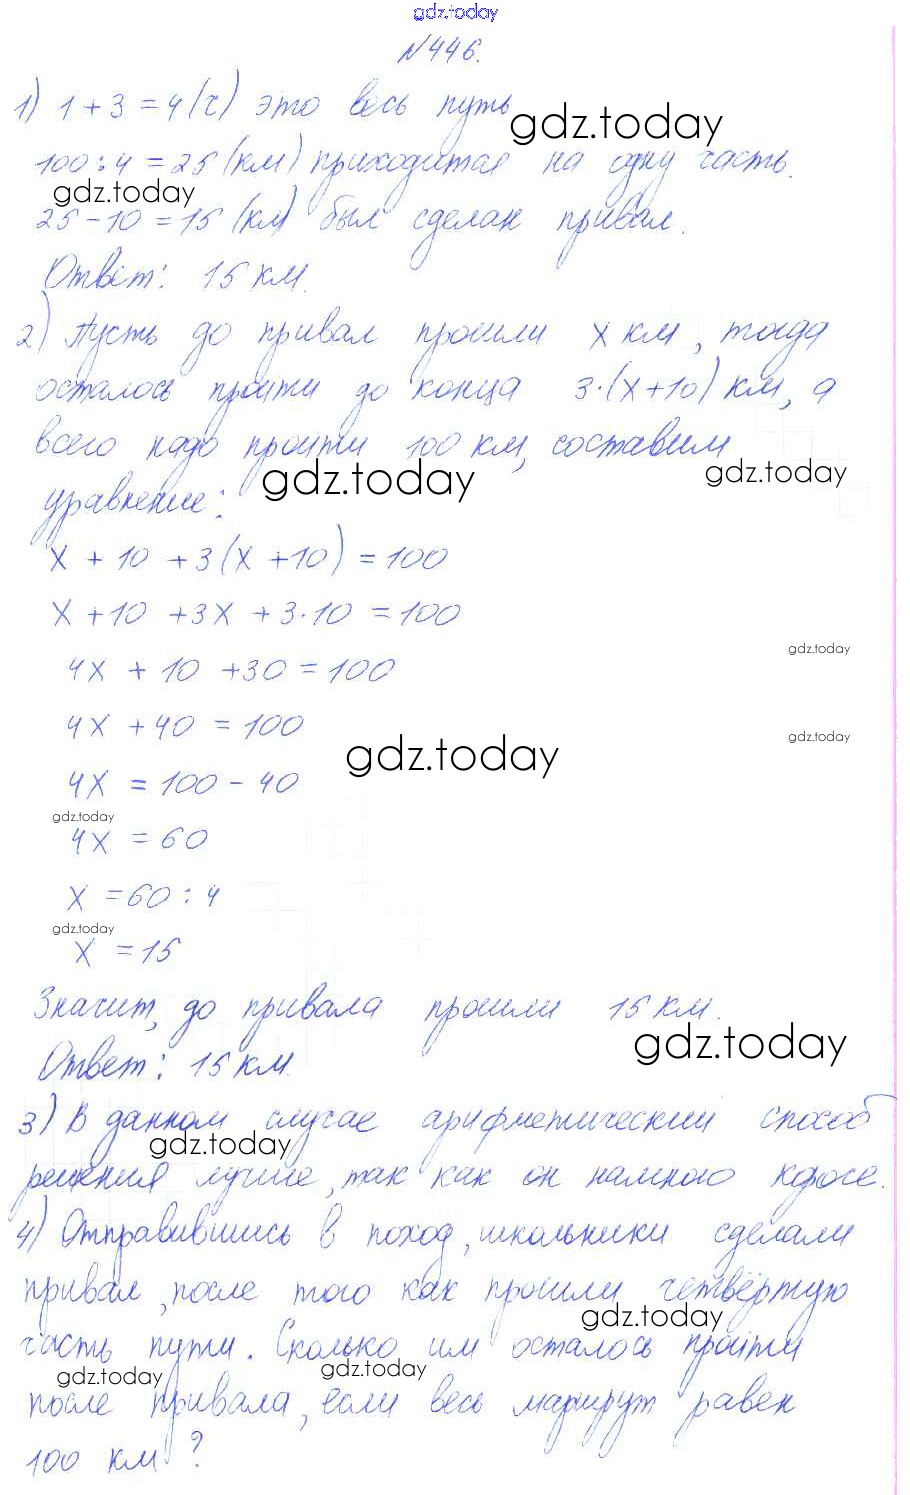 gdz.today
№446.
1) 1 + 3 = 4 (ч) это весь путь
gdz.today
100 : 4 = 25 (км) приходится на одну часть.
gdz.today
25 - 10 = 15 (км) был сделан привал.
Ответ: 15 км.
2) Пусть до привал прошли x км, тогда
осталось пройти до конца 3·(x+10) км, а
всего надо пройти 100 км, составим
gdz.today gdz.today
уравнение:
x + 10 + 3(x + 10) = 100
x + 10 + 3x + 3·10 = 100
gdz.today
4x + 10 + 30 = 100
4x + 40 = 100
gdz.today
gdz.today
4x = 100 - 40
gdz.today
4x = 60
x = 60 : 4
gdz.today
x = 15
Значит, до привала прошли 15 км.
gdz.today
Ответ: 15 км.
3) В данном случае арифметический способ
gdz.today
решения лучше, так как он намного короче.
4) Отправившись в поход, школьники сделали
привал, после того как прошли четвёртую
gdz.today
часть пути. Сколько им осталось пройти
gdz.today gdz.today
после привала, если весь маршрут равен
100 км?